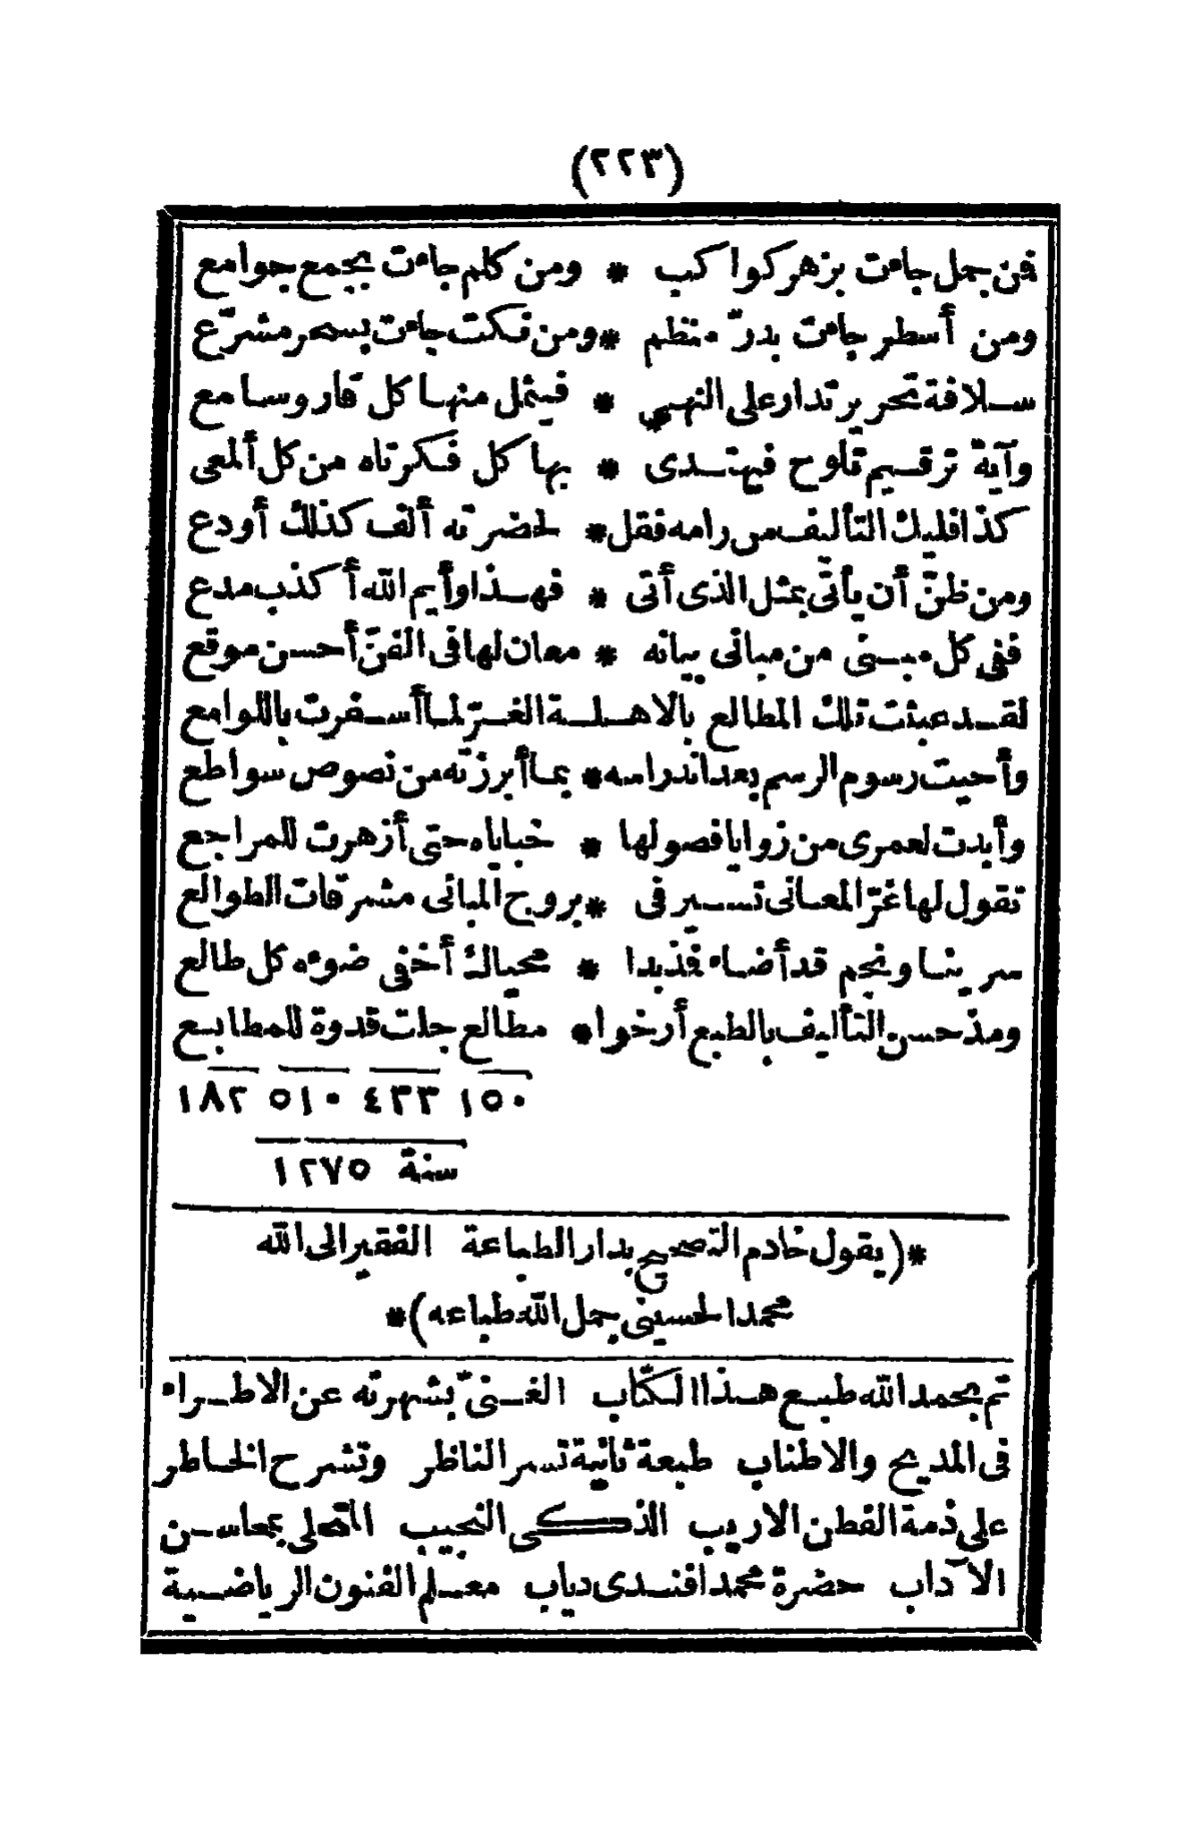 (٢٢٣)
فمن جمل جاءت بزهر كواكب * ومن كلم جاءت بجمع جوامع
ومن أسطر جاءت بدرّ منظم * ومن نكت جاءت بسحر مشرّع
سلافة تحرير تدار على النهى * فيثمل منها كل قار وسامع
وآية ترقيم تلوح فيهتدى * بها كل فكر تاه من كل ألمعى
كذا فليك التأليف من رامه فقل * لحضرته ألف كذلك أودع
ومن ظنّ أن يأتى بمثل الذى أتى * فهذا وأيم الله أكذب مدع
ففى كل مبنى من مبانى بيانه * معان لها فى الفنّ أحسن موقع
لقد عبثت تلك المطالع بالاهلة الغرّ لما أسفرت باللوامع
وأحيت رسوم الرسم بعد اندراسه * بما أبرزته من نصوص سواطع
وأبدت لعمرى من زوايا فصولها * خباياه حتى أزهرت للمراجع
تقول لها غرّ المعانى تسير فى * بروج المبانى مشرقات الطوالع
سرينا ونجم قد أضاء فمذ بدا * محياك أخفى ضوءه كل طالع
ومذ حسن التأليف بالطبع أرخوا * مطالع جلت قدوة للمطابع
١٥٠ ٤٣٣ ٥١٠ ١٨٢
سنة ١٢٧٥
*(يقول خادم التصحيح بدار الطباعة الفقير الى الله
محمد الحسينى جمل الله طباعه)*
تم بحمد الله طبع هذا الكتاب الغنىّ بشهرته عن الاطراء
فى المديح والاطناب طبعة ثانية تسر الناظر وتشرح الخاطر
على ذمة الفطن الاريب الذكى النجيب المتحلى بمحاسن
الآداب حضرة محمد افندى دياب معلم الفنون الرياضية